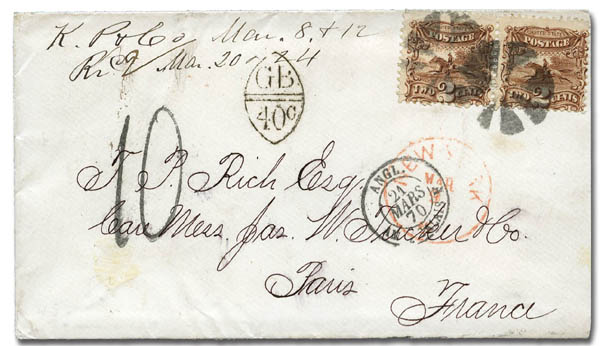 K. P & Co Mar. 8 & 12
Rec'd Mar. 20 24
POSTAGE
POSTAGE
TWO 2 CENTS
TWO 2 CENTS
GB
40c
10
NEW YORK
MAR
ANGL.
21
MARS
70
CALAIS
T. P. Rich Esq.
Care Mess. Jas. W. Tucker & Co.
Paris
France